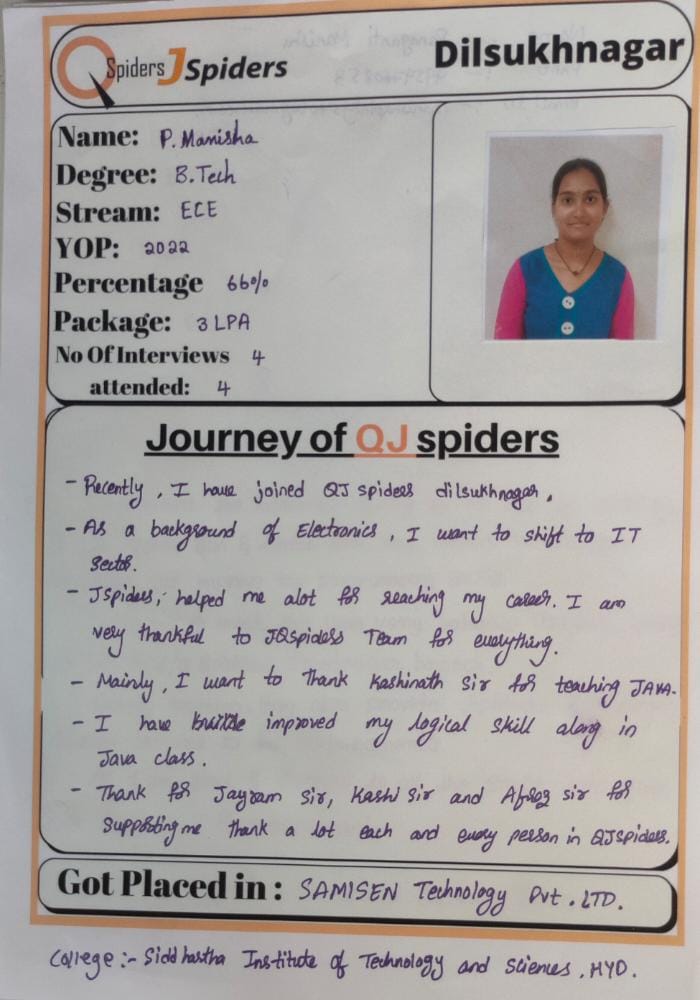 QSpiders JSpiders Dilsukhnagar
Name: P. Manisha
Degree: B.Tech
Stream: ECE
YOP: 2022
Percentage 66%
Package: 3 LPA
No Of Interviews 4
attended: 4
Journey of QJ spiders
- Recently, I have joined QJ spiders dilsukhnagar.
- As a background of Electronics, I want to shift to IT
sector.
- Jspiders, helped me alot for reaching my career. I am
very thankful to JQspiders Team for everything.
- Mainly, I want to Thank Kashinath sir for teaching JAVA.
- I have improved my logical skill along in
Java class.
- Thank for Jayram sir, Kashi sir and Afroz sir for
supporting me thank a lot each and every person in QJspiders.
Got Placed in : SAMISEN Technology Pvt. LTD.
College :- Siddhartha Institute of Technology and Sciences, HYD.